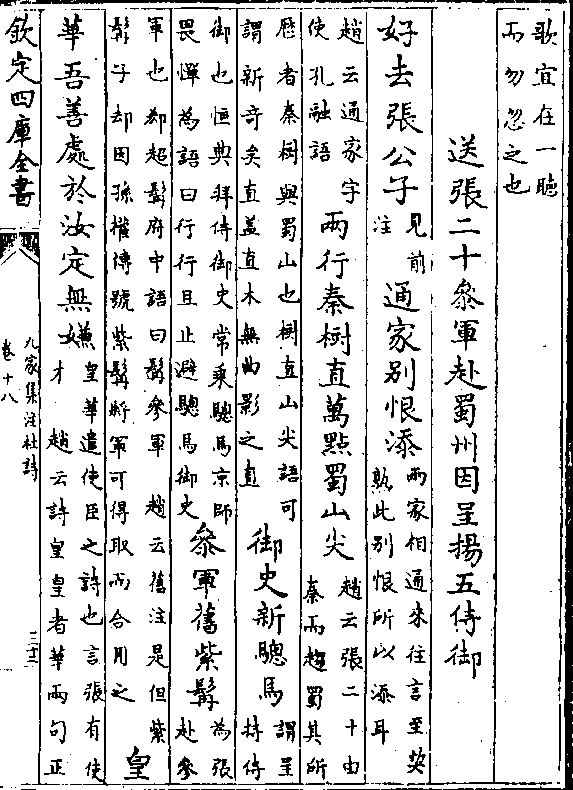 歌宜在一聴
而勿忽之也
送張二十叅軍赴蜀州因呈揚五侍御
好去張公子見前注通家別恨添兩家相通來往言至契熟此別恨所以添耳
趙云通家字使孔融語兩行秦樹直萬點蜀山尖趙云張二十由秦而趨蜀其所
歴者秦樹與蜀山也樹直山尖語可謂新奇矣直葢直木無曲影之直御史新驄馬謂呈持侍
御也恒典拜侍御史常乗驄馬京師畏憚為語曰行行且止避驄馬御史叅軍舊紫髯為張赴參
軍也郄超髯府中語曰髯參軍趙云舊注是但紫髯子却因孫權傳號紫髯將軍可得取而合用之皇
華吾善處於汝定無嫌皇華遣使臣之詩也言張有使才趙云詩皇皇者華兩句正
欽定四庫全書
九家集注杜詩
卷十八
三十三